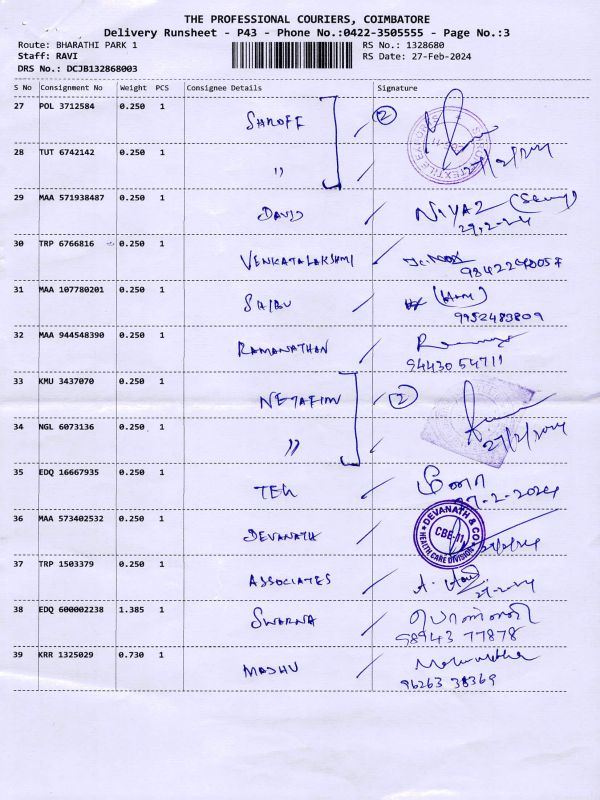 THE PROFESSIONAL COURIERS, COIMBATORE
Delivery Runsheet - P43 - Phone No.:0422-3505555 - Page No.:3
Route: BHARATHI PARK 1 RS No.: 1328680
Staff: RAVI RS Date: 27-Feb-2024
DRS No.: DCJB132868003
S No Consignment No Weight PCS Consignee Details Signature
27 POL 3712584 0.250 1 SHROFF 2
28 TUT 6742142 0.250 1 " 27/2/2024
29 MAA 571938487 0.250 1 DAVID NIYAZ
29.2.24
30 TRP 6766816 0.250 1 VENKATALAKSHMI
31 MAA 107780201 0.250 1 SHIBU
9952483809
32 MAA 944548390 0.250 1 RAMANATHAN
94430 54711
33 KMU 3437070 0.250 1 NETAFIM 2
34 NGL 6073136 0.250 1 " 27/2/2024
35 EDQ 16667935 0.250 1
27-2-2024
36 MAA 573402532 0.250 1 DEVANATH DEVANATH & CO. CBE-11 HEALTH CARE DIVISION
37 TRP 1503379 0.250 1 ASSOCIATES
27-2-24
38 EDQ 600002238 1.385 1 SWARNA
98943 77878
39 KRR 1325029 0.730 1 MADHU
96263 38369